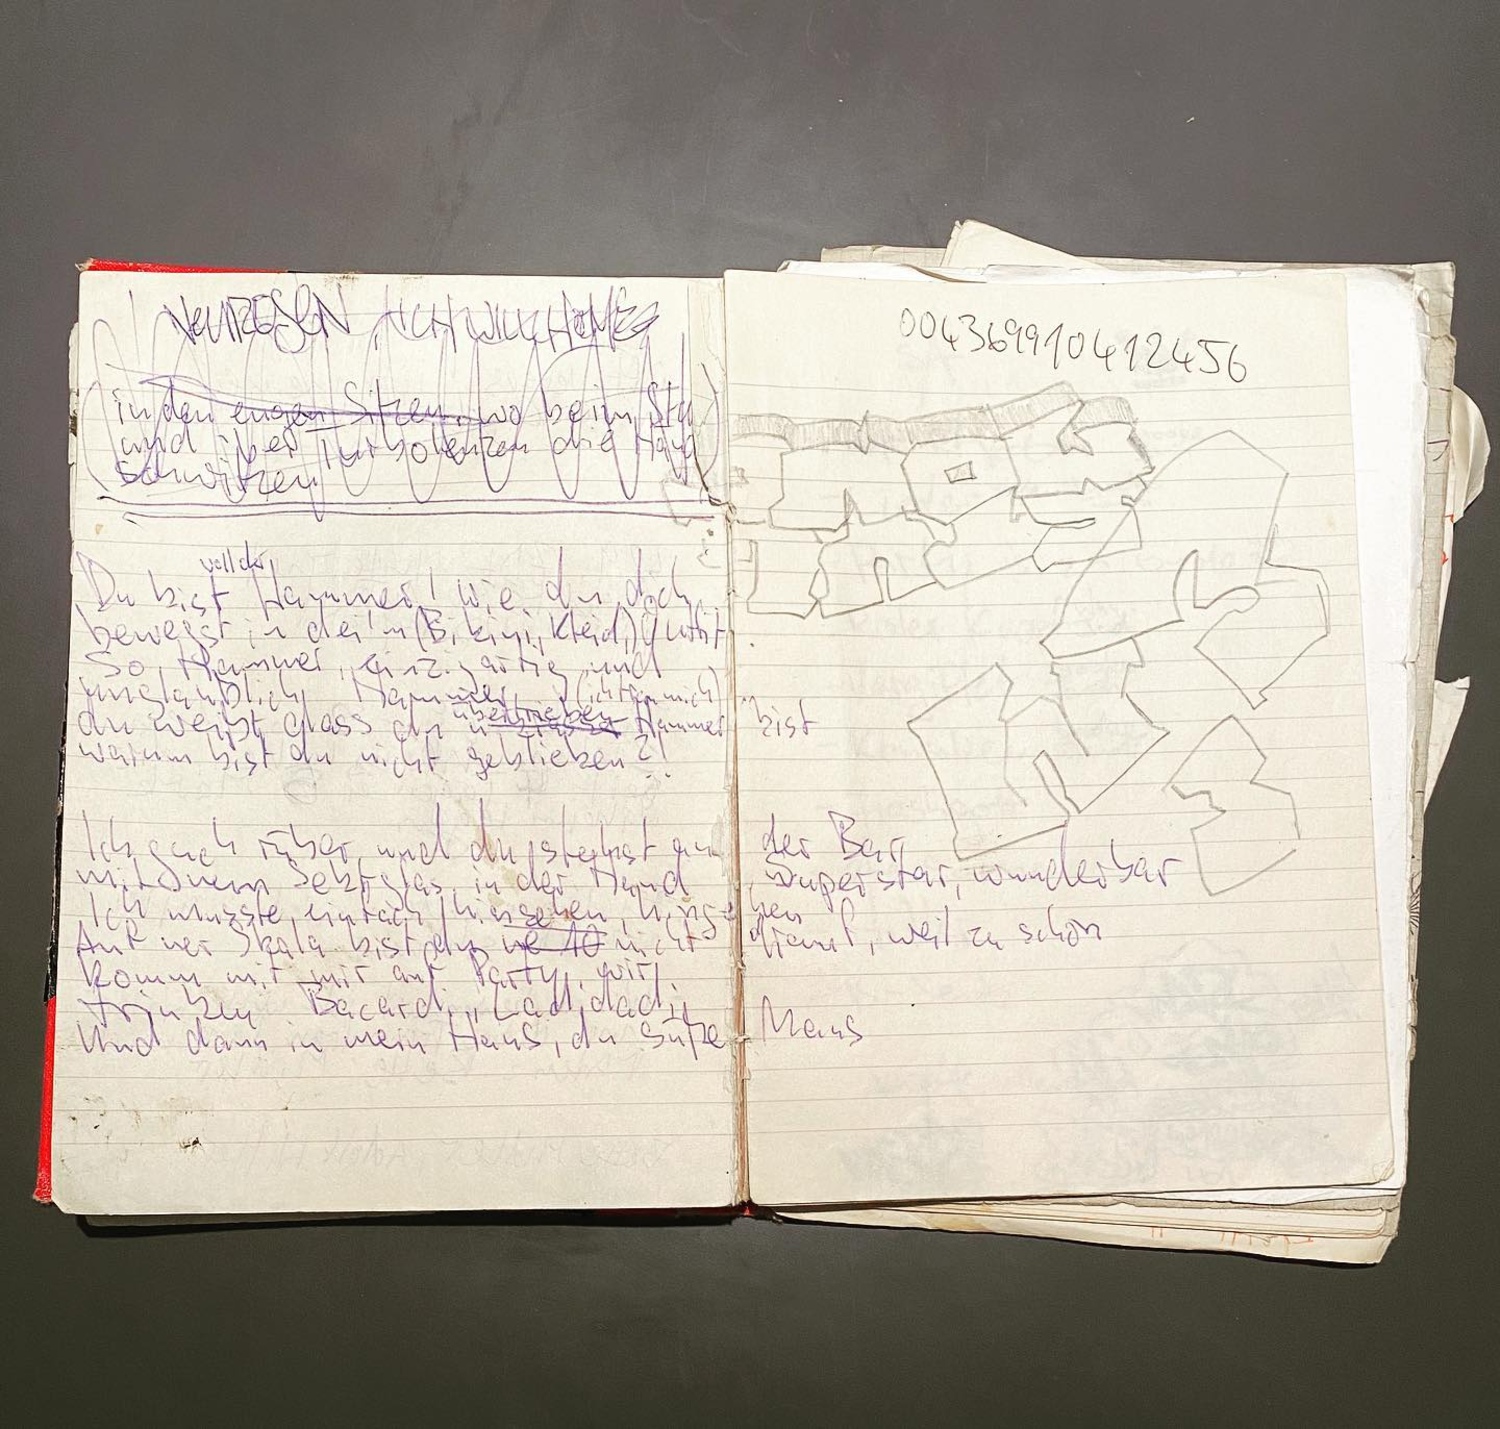 004369910412456
in den engen Sitzen, wo beim
und über Turbolenzen die
schwitzen
voll der
Du bist Hammer! wie du dich
bewegst in dei'm (Bikini, Kleid)
So Hammer, einzigartig und
unglaublich Hammer
übertrieben
du weißt dass du Hammer bist
warum bist du nicht geblieben?!
Ich guck rüber, und du stehst an der Bar,
mit Sektglas, in der Hand, Superstar, wunderbar
Ich musste einfach hinsehen, hingehen
Auf ner Skala bist du ne 10 nicht, weil zu schön
komm mit mir auf Party, wir
trinken Bacardi, Ladidadi
Und dann in mein Haus, du süße Maus